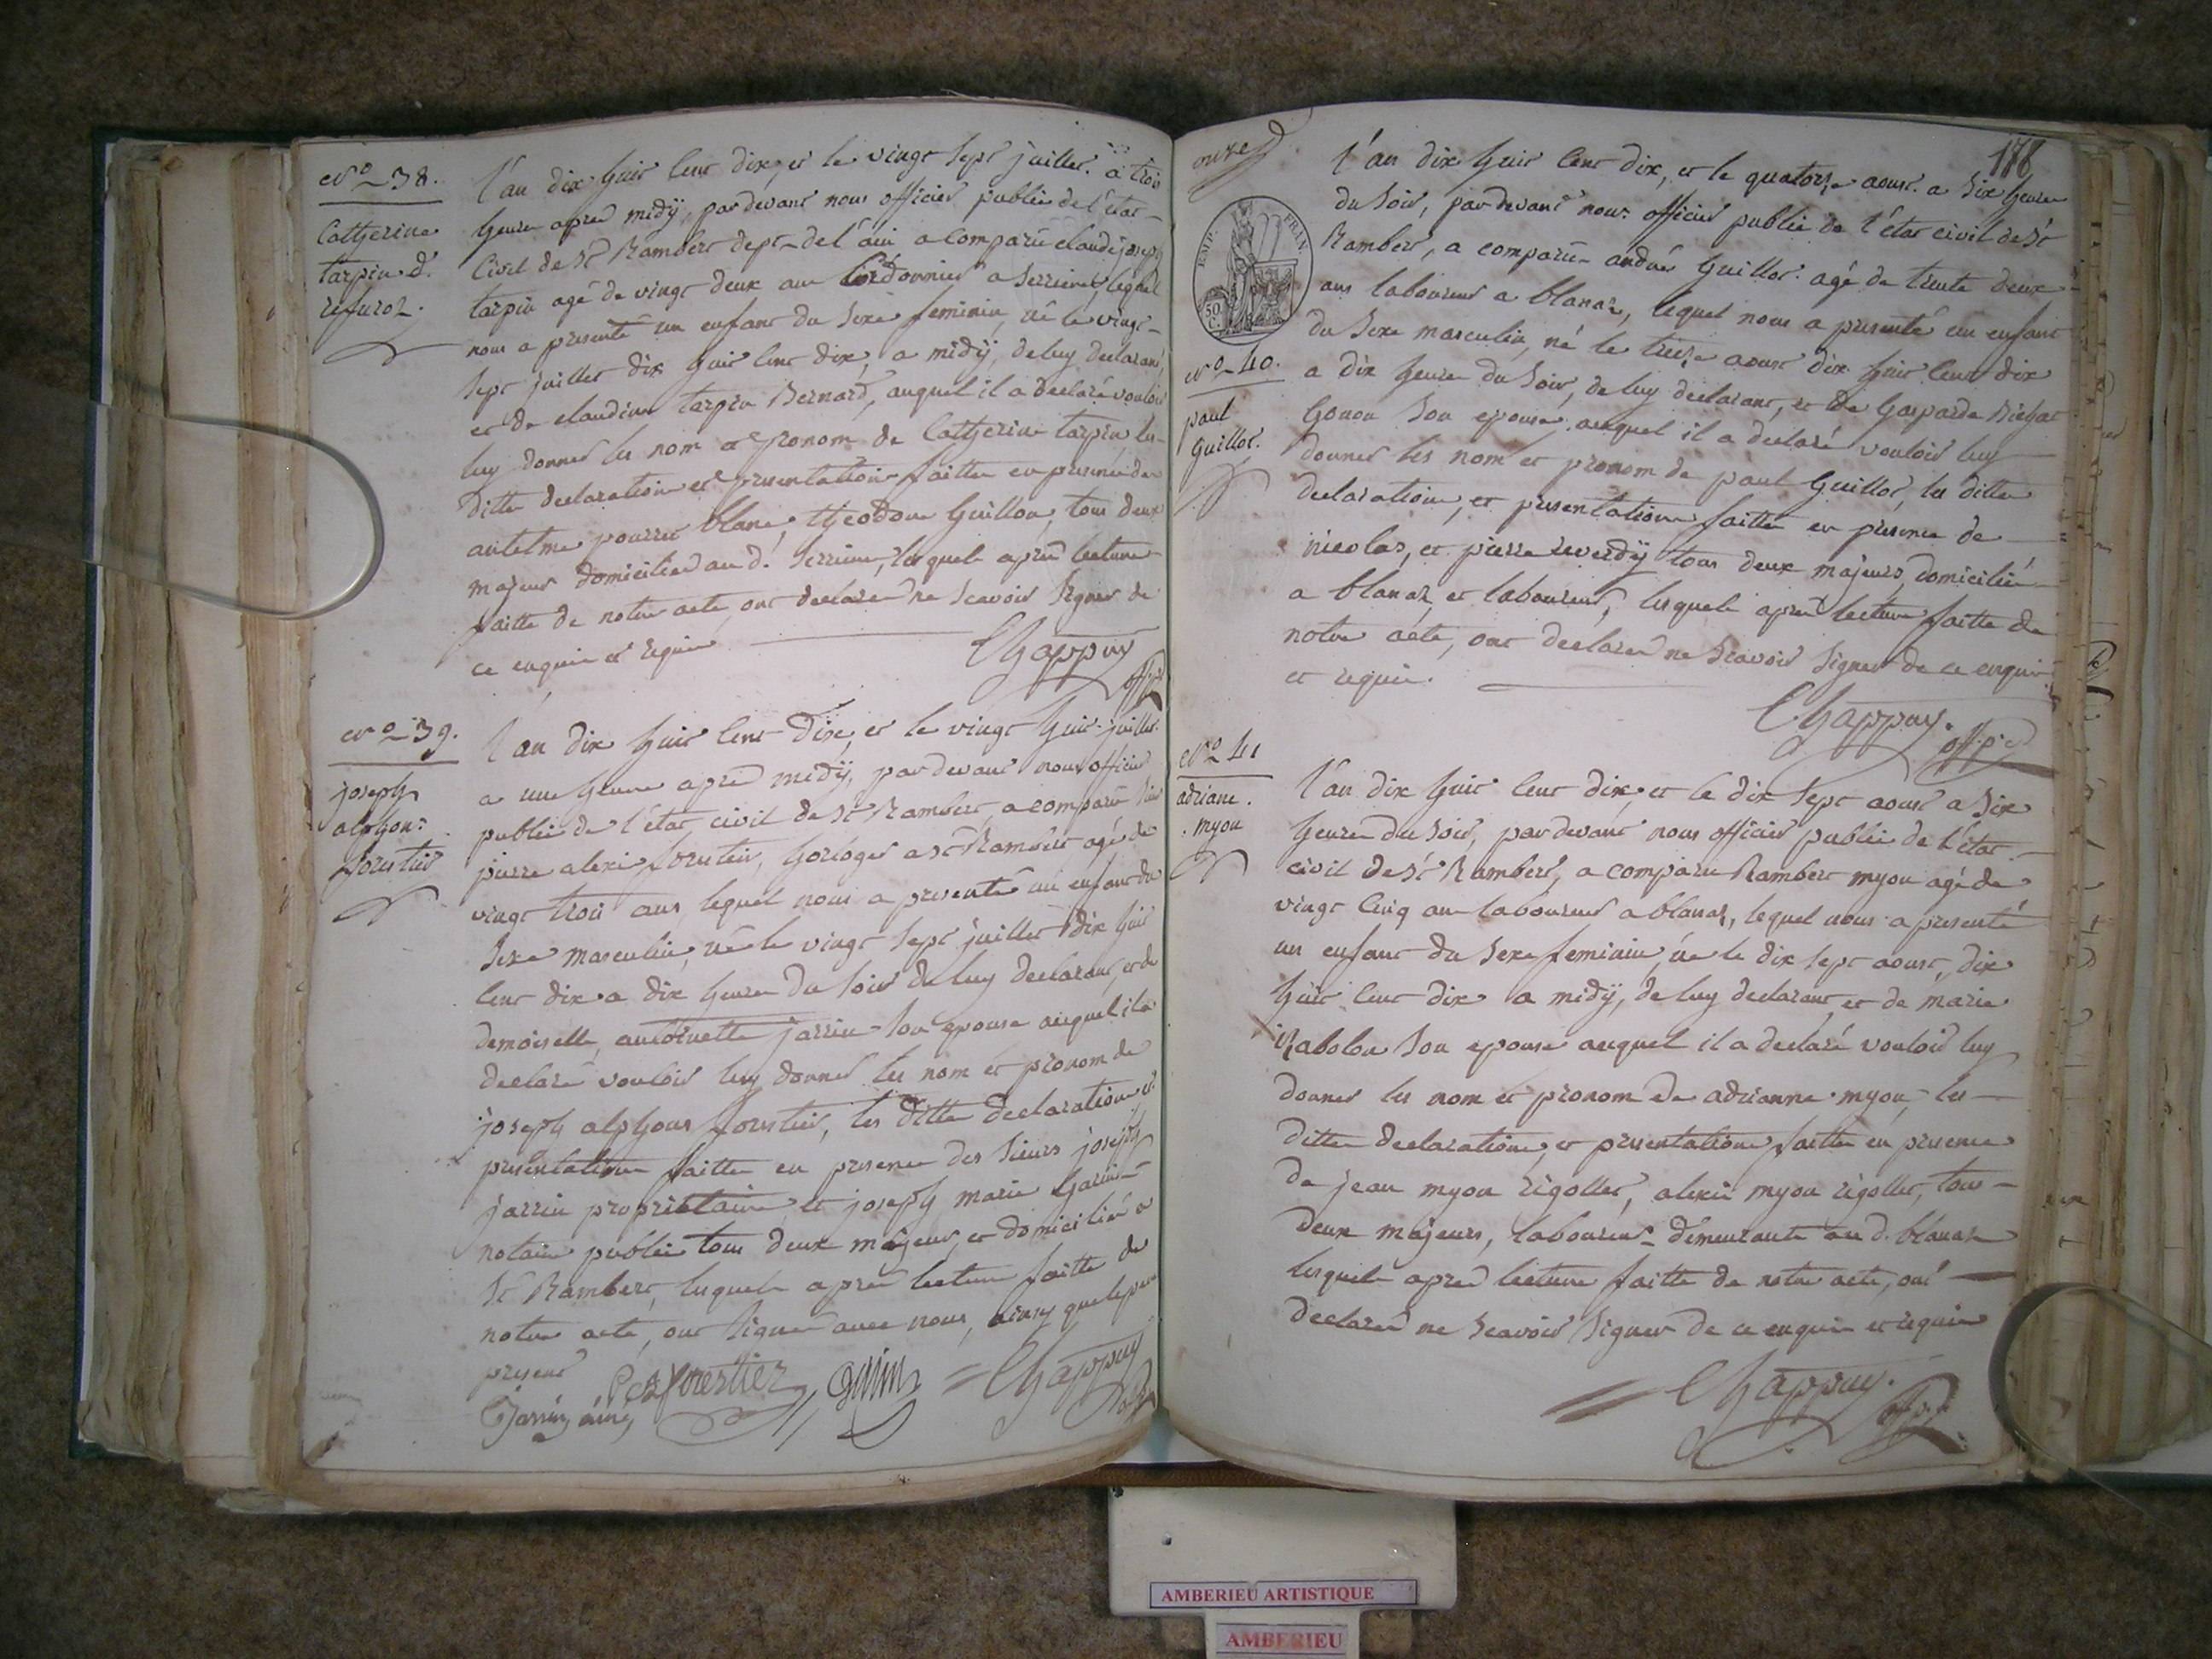 N.o 38.
Catherine
tarpin d.
refuroz.
l'an dix huit cent dix, et le vingt sept juillet a trois
heure apres midÿ, pardevant nous officier public de l'état
Civil de St Rambert dept de l'ain a comparu claude joseph
tarpin agé de vingt deux ans Cordonnier a Serrieres, lequel
nous a presenté un enfant du sexe feminin, né le vingt
sept juillet dix huit cent dix, a midÿ, de luy declarant,
et de claudine tarpin Bernard, auquel il a declaré vouloir
luy donner les nom et pronom de Catherine tarpin les
ditte declaration et presentation faitte en presence de
antelme pourret blanc, theodore Guillon, tous deux
majeur domicilier au d. Serriere, lesquels apred lecture
faitte de notre acte, ont declarer ne scavoir signer de
ce enquis et requis
Chappuy
off. p.
N.o 39.
joseph
alphon:
forestier
l'an dix huit cent dix, et le vingt huit juillet
a une heure apred midÿ, pardevant nous officier
public de l'état civil de St Rambert, a comparu sieur
pierre alexi forestier, horloger a St Rambert agé de
vingt trois ans, lequel nous a presenté un enfant du
sexe masculin, né le vingt sept juillet dix huit
cent dix a dix heure du soir de luy declarant, et de
demoiselle, antoinette jarrin son epouse auquel il a
declaré vouloir luy donner les nom et pronom de
joseph alphons forestier, les ditte declaration et
presentation faitte en presence des sieurs joseph
jarrin proprietaire et joseph marie Garin
notaire public tous deux majeur, et domicilié a
St Rambert, lesquels apred lecture faitte de
notre acte, ont signer avec nous, ainsy que le pere
present
P. A. forestier
Garin
Chappuy
Jarrin ainé
178
onze
EMP. FRAN.
50 C.
N.o 40.
paul
Guillot.
l'an dix huit cent dix, et le quatorze aoust a six heure
du soir, pardevant nous officier public de l'état civil de St
Rambert, a comparu andré Guillot agé de trente deux
ans laboureur a blanaz, lequel nous a presenté un enfant
du sexe masculin, né le treize aoust dix huit cent dix
a dix heure du soir, de luy declarant, et de Gasparde
Gonon son epouse auquel il a declaré vouloir luy
donner les nom et pronom de paul Guillot, les ditte
declaration, et presentation faitte en presence de
nicolas, et pierre reverdÿ tous deux majeurs, domicilié
a blanaz et laboureur, lesquels apred lecture faitte de
notre acte, ont declarer ne scavoir signer de ce enquis
et requis.
Chappuy.
off. p.
N.o 41
adriane.
myon
l'an dix huit cent dix, et le dix sept aoust a six
heure du soir, pardevant nous officier public de l'état
civil de St Rambert, a comparu Rambert myon agé de
vingt cinq ans laboureur a blanaz, lequel nous a presenté
un enfant du sexe feminin, né le dix sept aoust, dix
huit cent dix a midÿ, de luy declarant et de marie
Rabolon son epouse auquel il a declaré vouloir luy
donner les nom et pronom de adrianne myon, les
ditte declaration, et presentation faitte en presence
de jean myon rigollet, alexis myon rigollet, tous
deux majeurs, laboureur demeurants au d. blanaz
lesquels apred lecture faitte de notre acte, ont
declarer ne scavoir signer de ce enquis et requis
Chappuy.
off. p.
AMBERIEU ARTISTIQUE
AMBERIEU